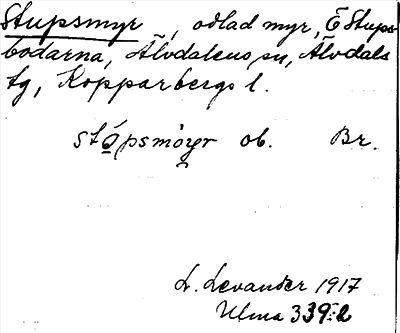 Stupsmyr, odlad myr, Ö Stups-
bodarna, Älvdalens sn, Älvdals
tg, Kopparbergs l.
stópsmöyr ob. Br.
L. Levander 1917
Ulma 339:2